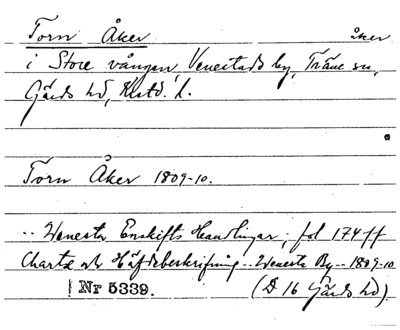 Torn Åker åker
i Store vången, Venestads by, Träne sn,
Gärds hd, Krstd. l.
Torn Åker 1809-10.
.. Wenesta Enskifts Handlingar, fol 174 ff
Charta och Häfdebeskrifning .. Wenesta By .. 1809-10
Nr 5339. (D 16 Gärds hd).